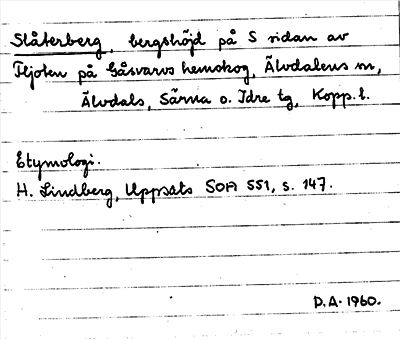 Slåterberg, bergshöjd på S sidan av
Fljoten på Gåsvarvs hemskog, Älvdalens sn,
Älvdals, Särna o. Idre tg, Kopp. l.
Etymologi.
H. Lindberg, Uppsats SOFI 551, s. 147.
D.A. 1960.